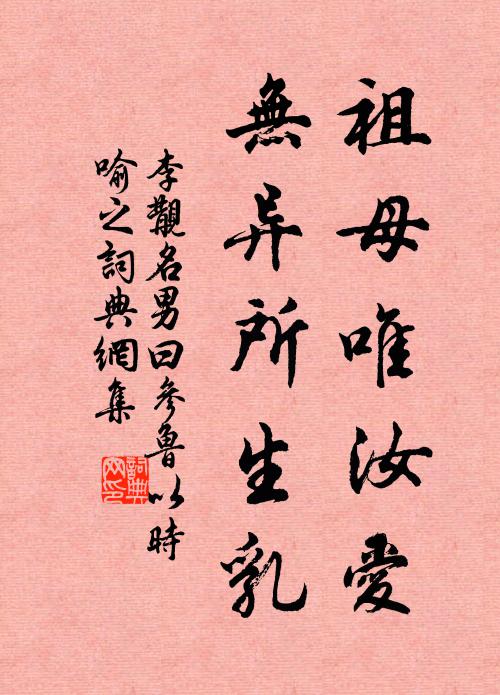 祖母唯汝愛
無异所生乳
李覯名男曰參魯以時
喻之詞典網集
詞典网印